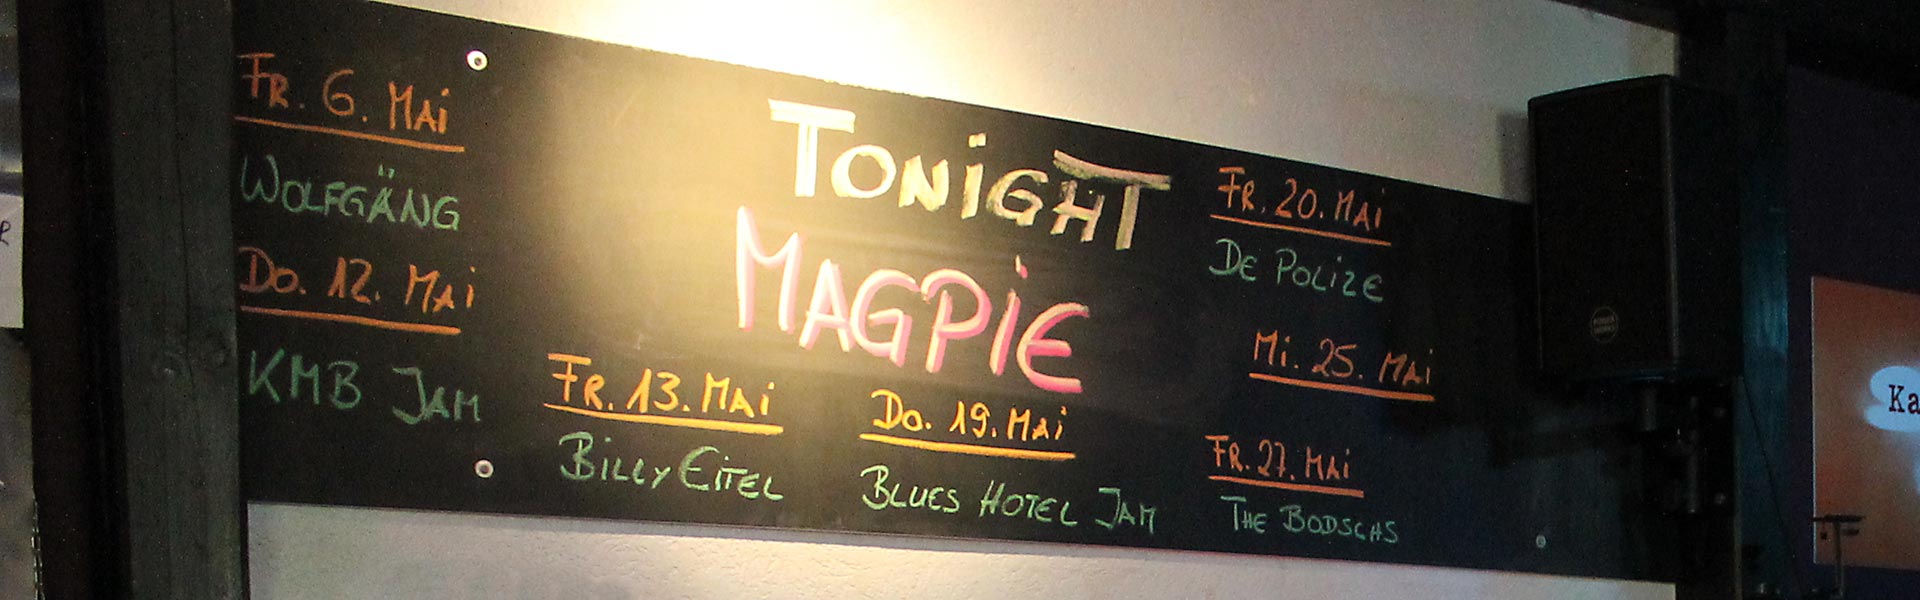 Fr. 6. Mai
Wolfgäng
Do. 12. Mai
KMB Jam
Tonight
Magpie
Fr. 13. Mai
Billy Eitel
Do. 19. Mai
Blues Hotel Jam
Fr. 20. Mai
De Polize
Mi. 25. Mai
Fr. 27. Mai
The Bodschs
Ka